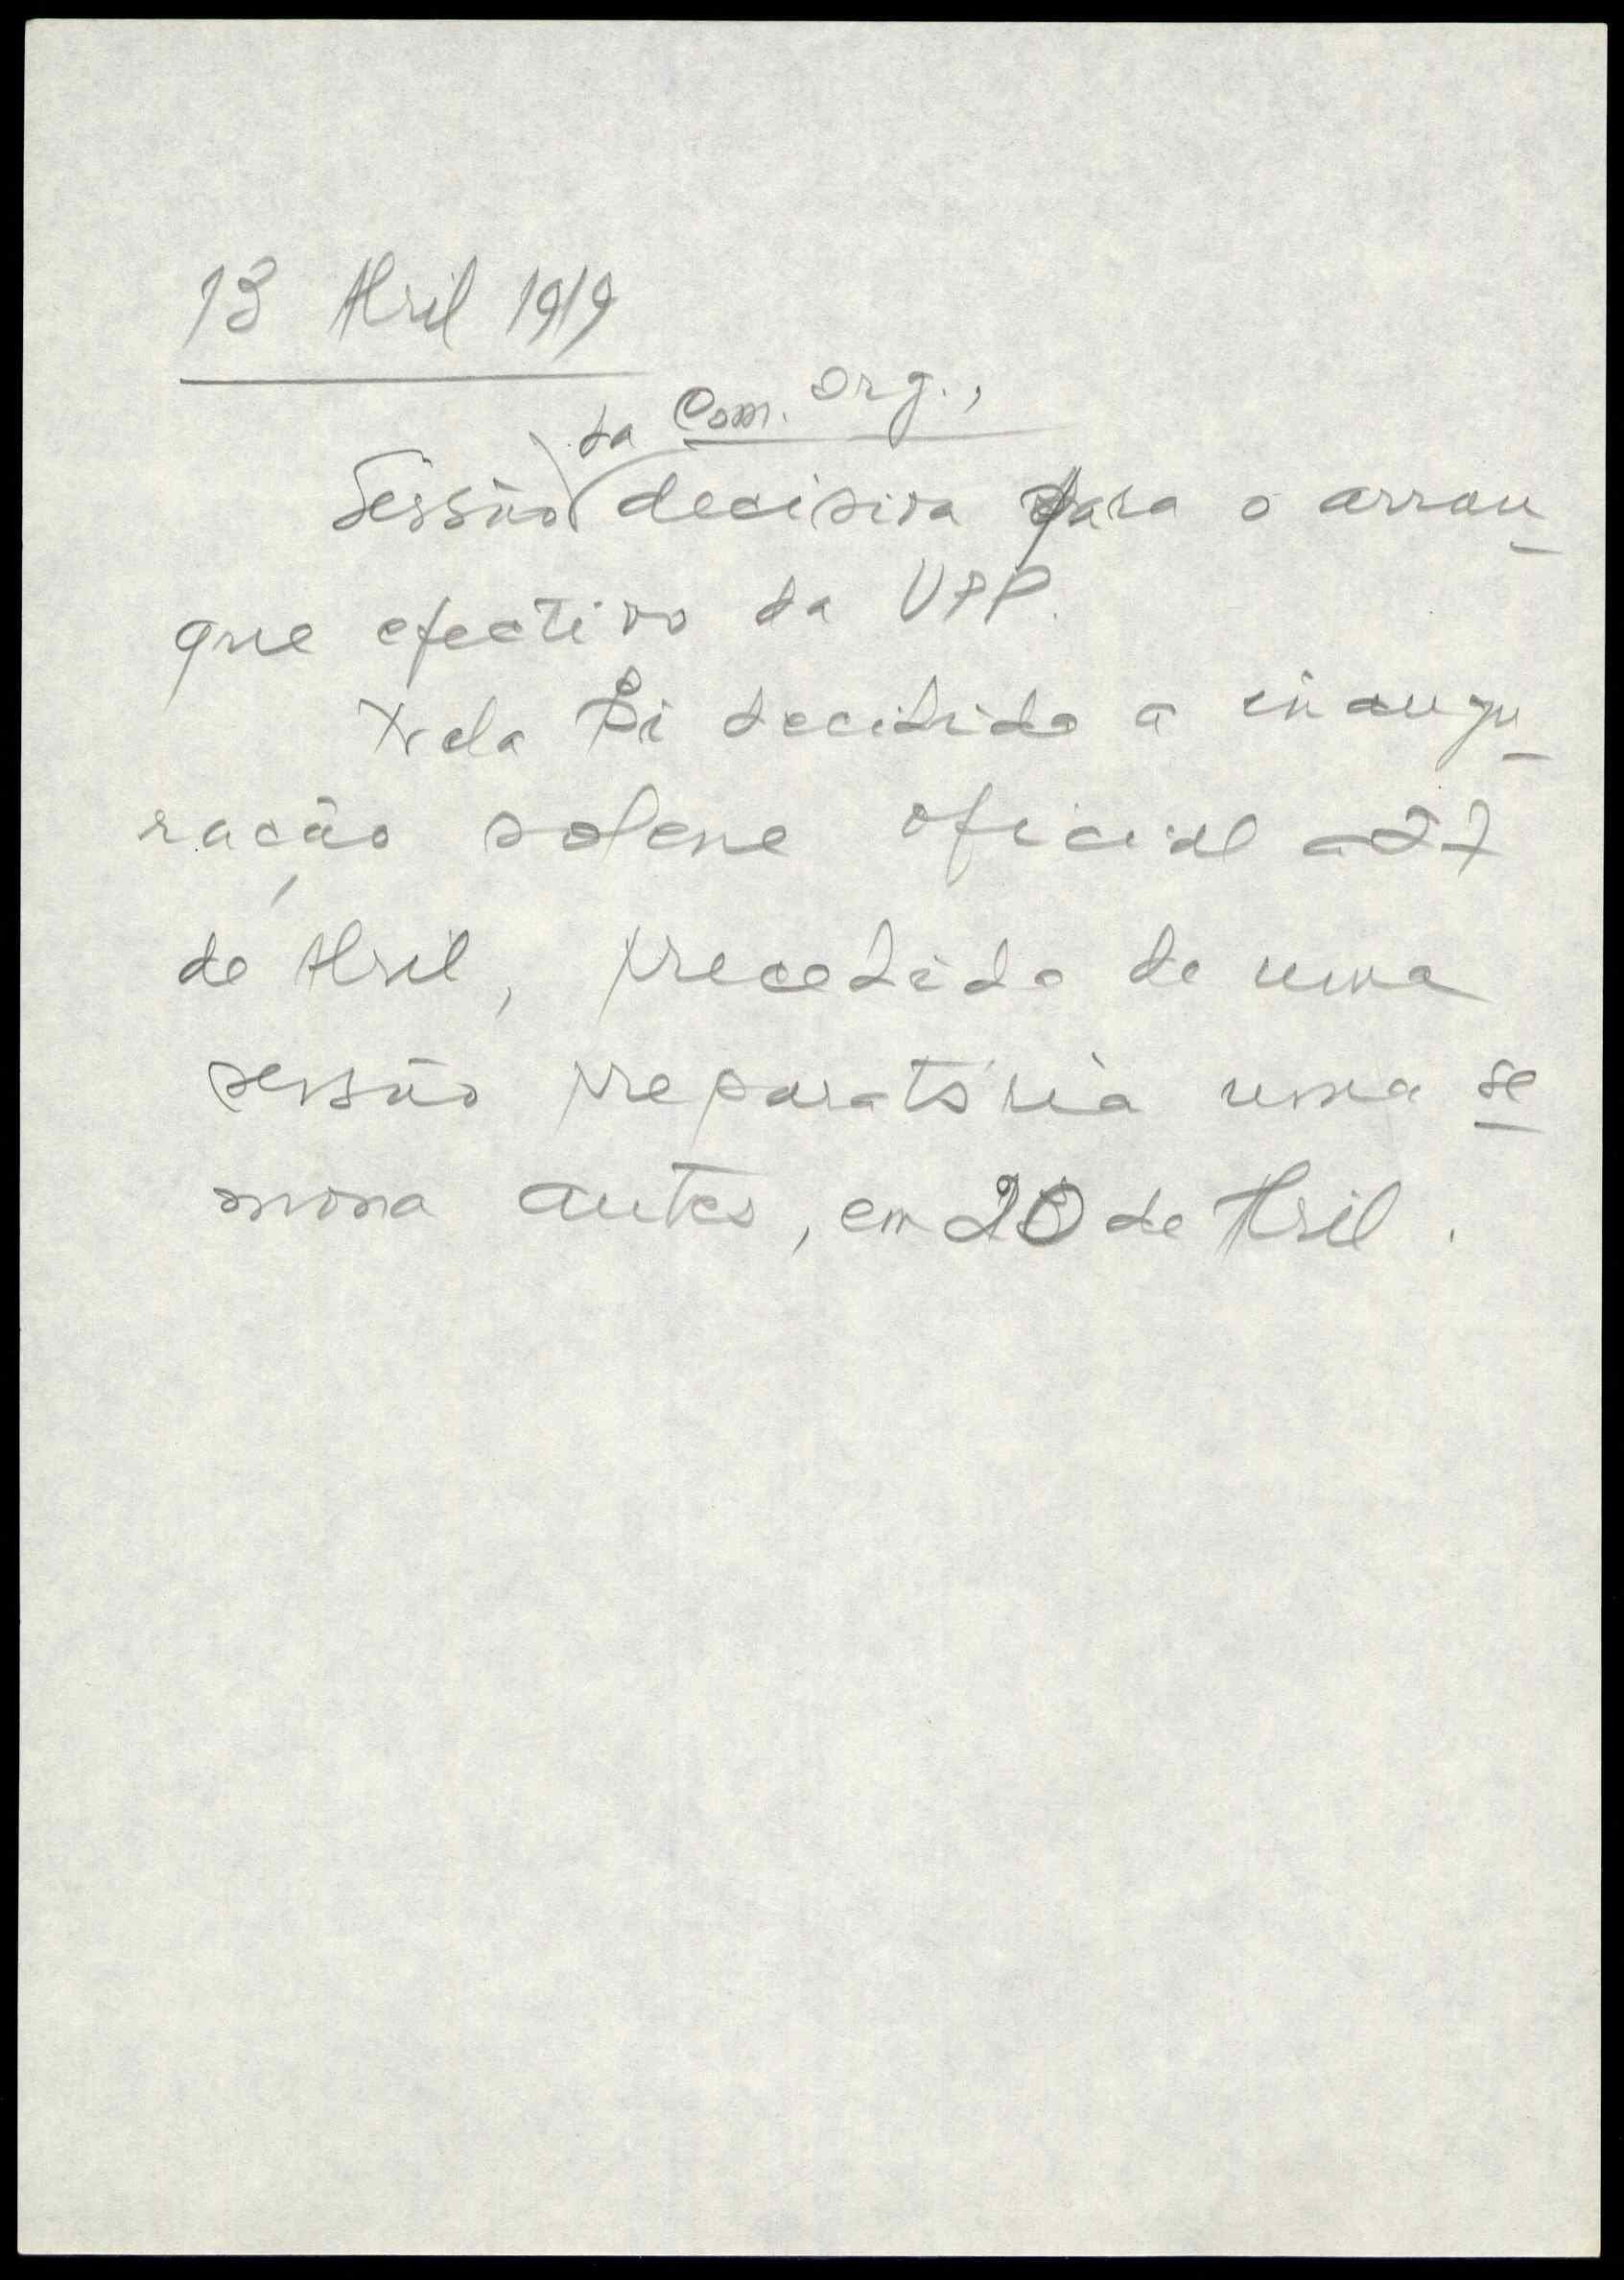 13 Abril 1919
da Com. Org.,
Sessão decisiva para o arran-
que efectivo da UPP.
Nela foi decidida a inaugu-
ração solene oficial a 27
de Abril, precedida de uma
sessão preparatória uma se-
mana antes, em 20 de Abril.